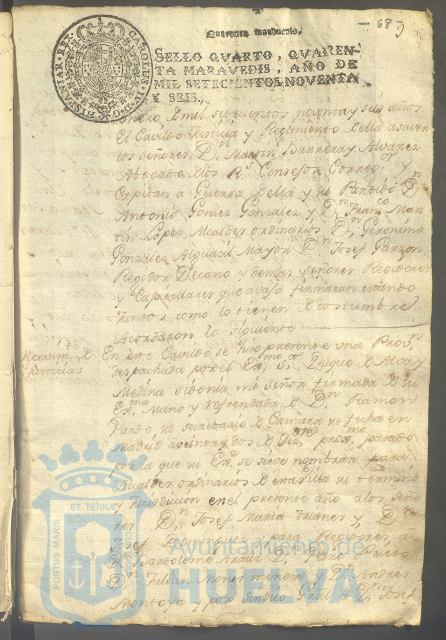 Quarenta maravedis.
68
CAROLUS IV D G HISPANIAR REX
SELLO QVARTO, QVAREN-
TA MARAVEDIS, AÑO DE
MIL SETECIENTOS NOVENTA
Y SEIS.
Enero de mil setecientos noventa y seis años
El Cavildo Justicia y Regimiento de ella a saver
los Señores Dn Martin Barrera y Alvarez
Abogado de los Rs Consejos Correg. y
Capitan a Guerra de ella y su Partido Dn
Antonio Gomez Gonzalez y Dn Franco Mar
tin Lopez Alcaldes ordinarios Dn Geronimo
Gonzalez Alguacil Mayor Dn Josef Garzon
Regidor Decano y demas Señores Regidores
y Capitulares que avajo firmaran estando
juntos como lo tienen de costumbre
Acordaron lo siguiente
En este Cavildo se hizo presente una Provn
despachada por el Exmo Sr Duque de Alva y
Medina Sidonia mi señor firmada de su
Exa Mano y refrendada de Dn Ramon
Pardo su secretario de Camara su fecha en
Madrid a veinte y dos de Dize proxmo pasado
por la que su Exa se sirve nombrar para
Alcaldes ordinarios de esta villa su termino
y Jurisdiccion en el presente año a los Seño
res Dn Josef Maria Juanes y Dn
Josef Dominguez y para Regidores a
Dn Bartolome
Dn Julian Mones menor y Dn Andres
Montoya y por Sindico Gral a Dn Josef
PORTUS MARIS
ET TERRAE
Ayuntamiento de
HUELVA